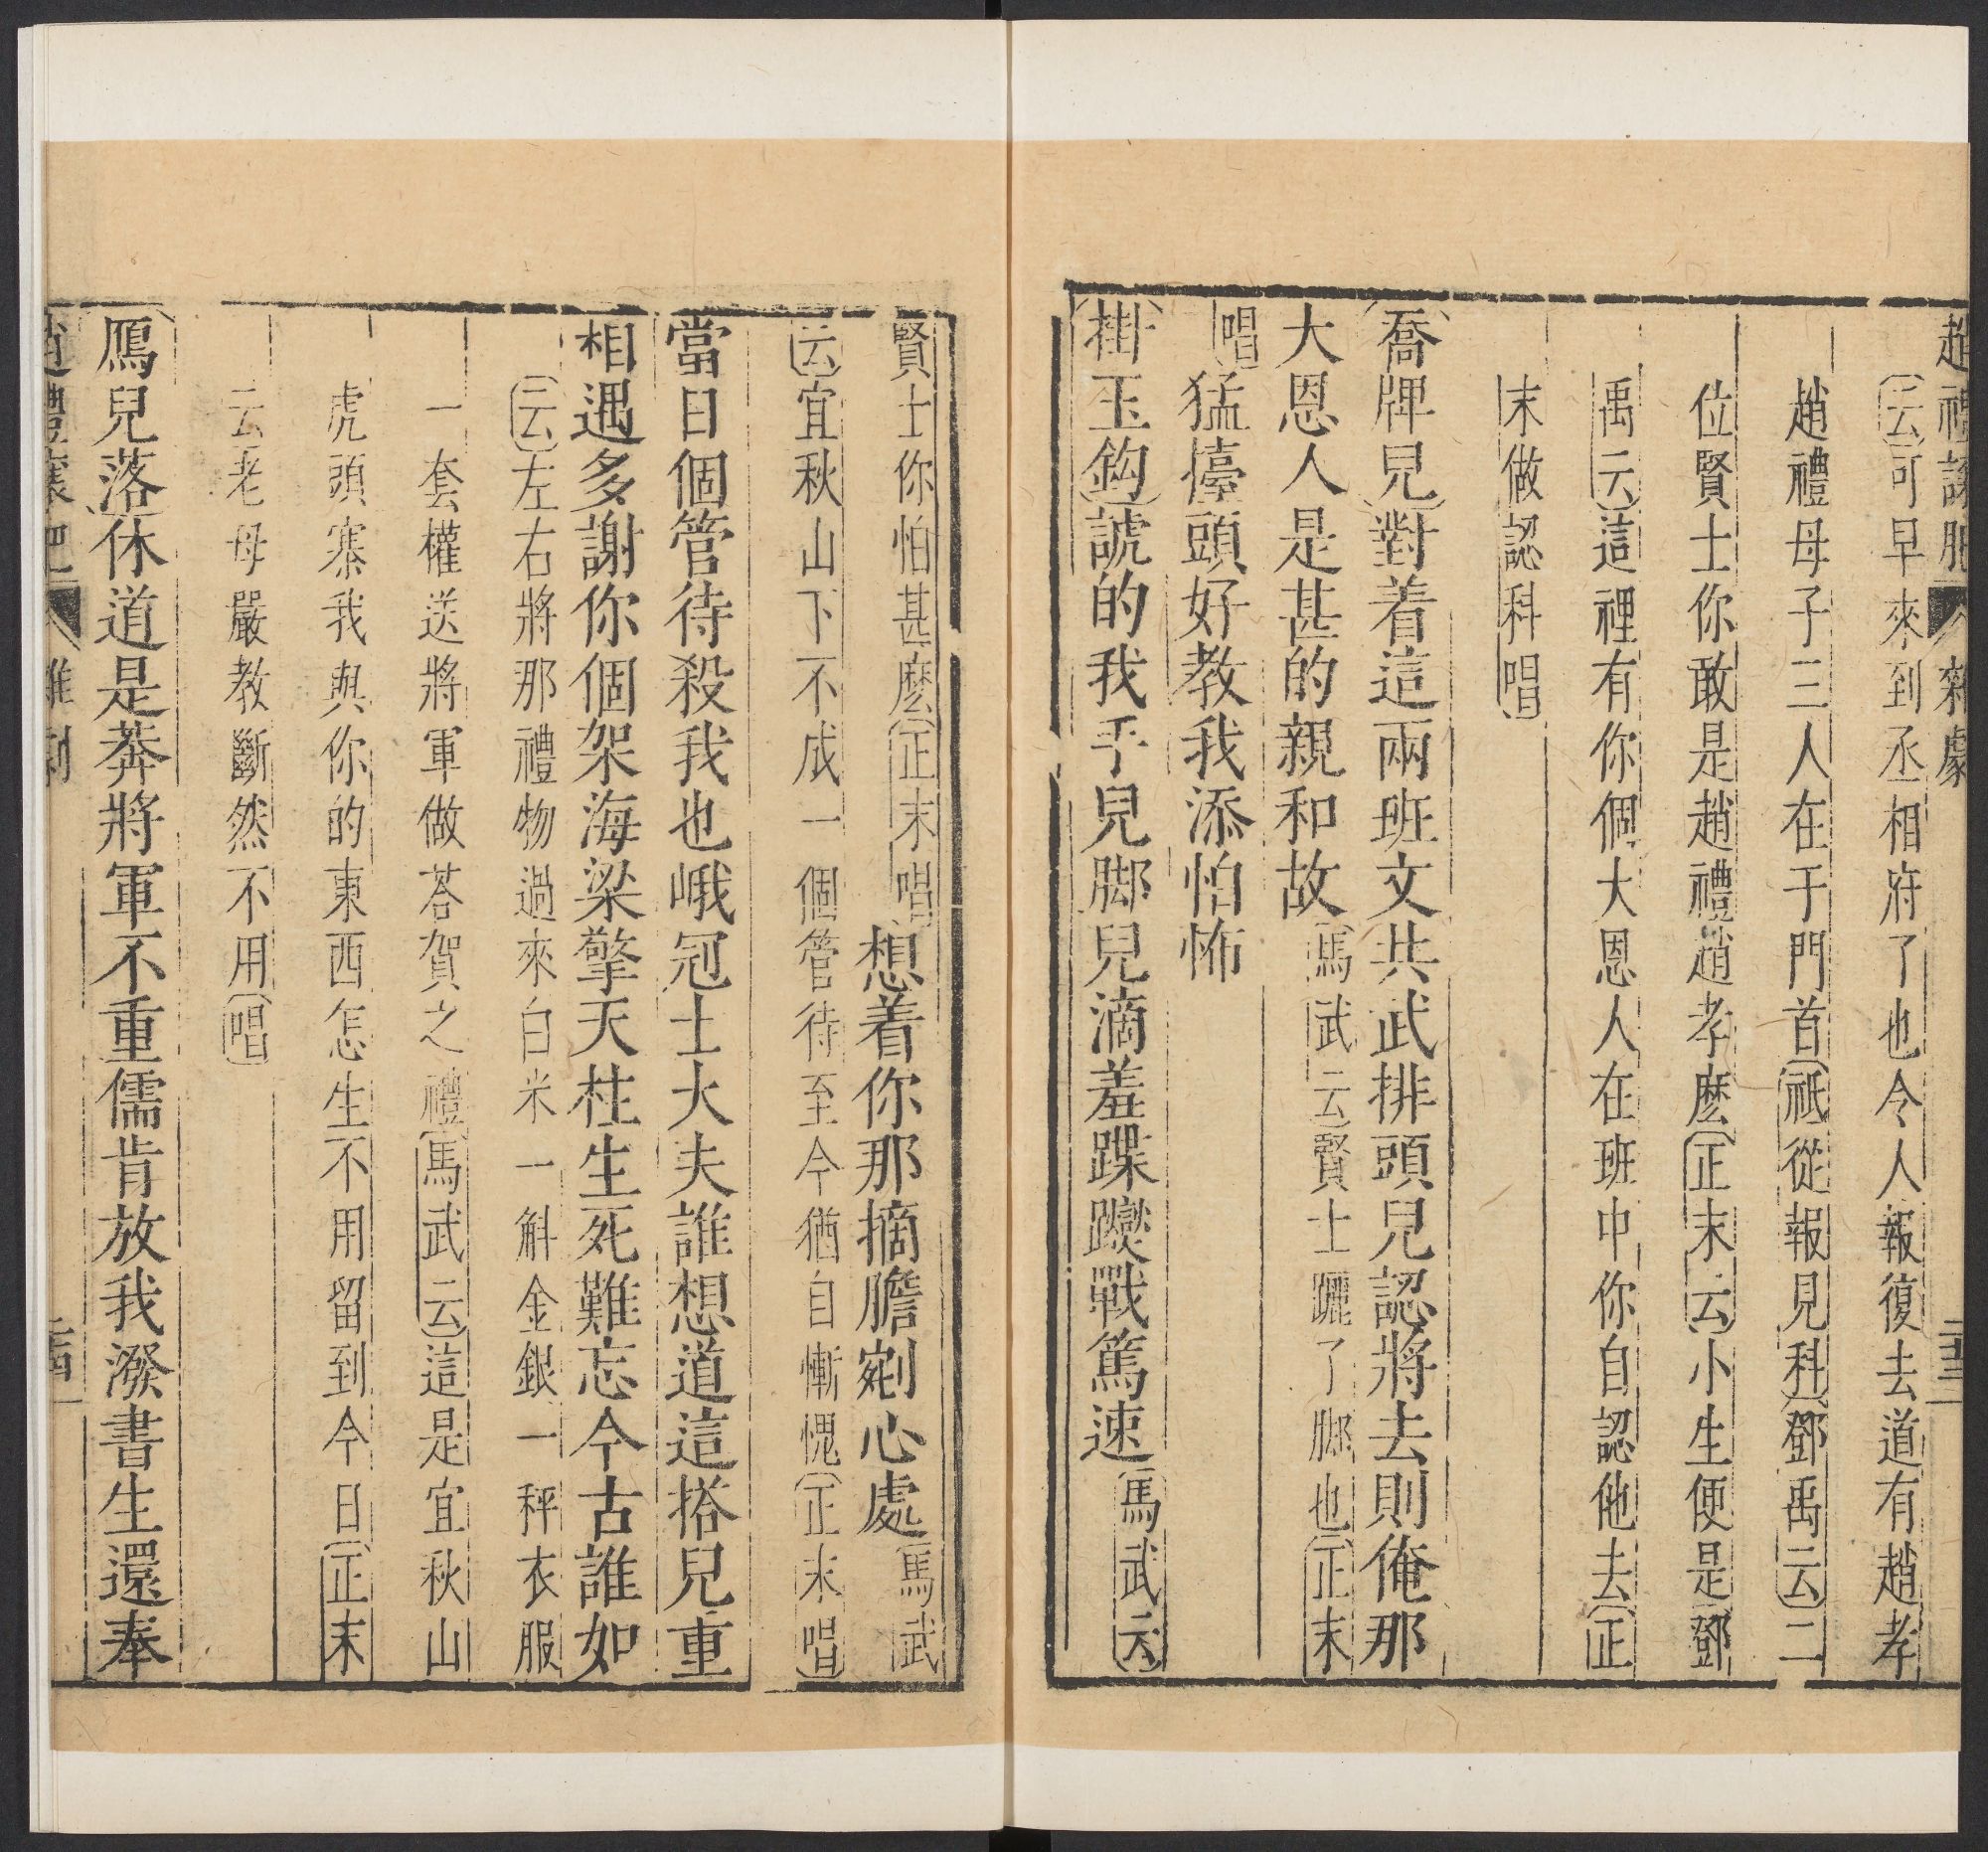 趙禮讓肥 雜劇 二十三
云可早來到丞相府了也令人報復去道有趙孝
趙禮母子三人在于門首祗從報見科鄧禹云二
位賢士你敢是趙禮趙孝麽正末云小生便是鄧
禹云這裡有你個大恩人在班中你自認他去正
末做認科唱
喬牌兒對着這兩班文共武排頭兒認將去則俺那
大恩人是甚的親和故馬武云賢士躧了脚也正末
唱猛擡頭好教我添怕怖
掛玉鈎諕的我手兒脚兒滴羞蹀躞戰篤速馬武云
賢士你怕甚麽正末唱想着你那摘膽剜心處馬武
云宜秋山下不成一個管待至今猶自慚愧正末唱
當日個管待殺我也峨冠士大夫誰想道這搭兒重
相遇多謝你個架海梁擎天柱生死難忘今古誰如
云左右將那禮物過來白米一斛金銀一秤衣服
一套權送將軍做荅賀之禮馬武云這是宜秋山
虎頭寨我與你的東西怎生不用留到今日正末
云老母嚴教斷然不用唱
鴈兒落休道是莽將軍不重儒肯放我潑書生還奉
趙禮讓肥 雜劇 二十四